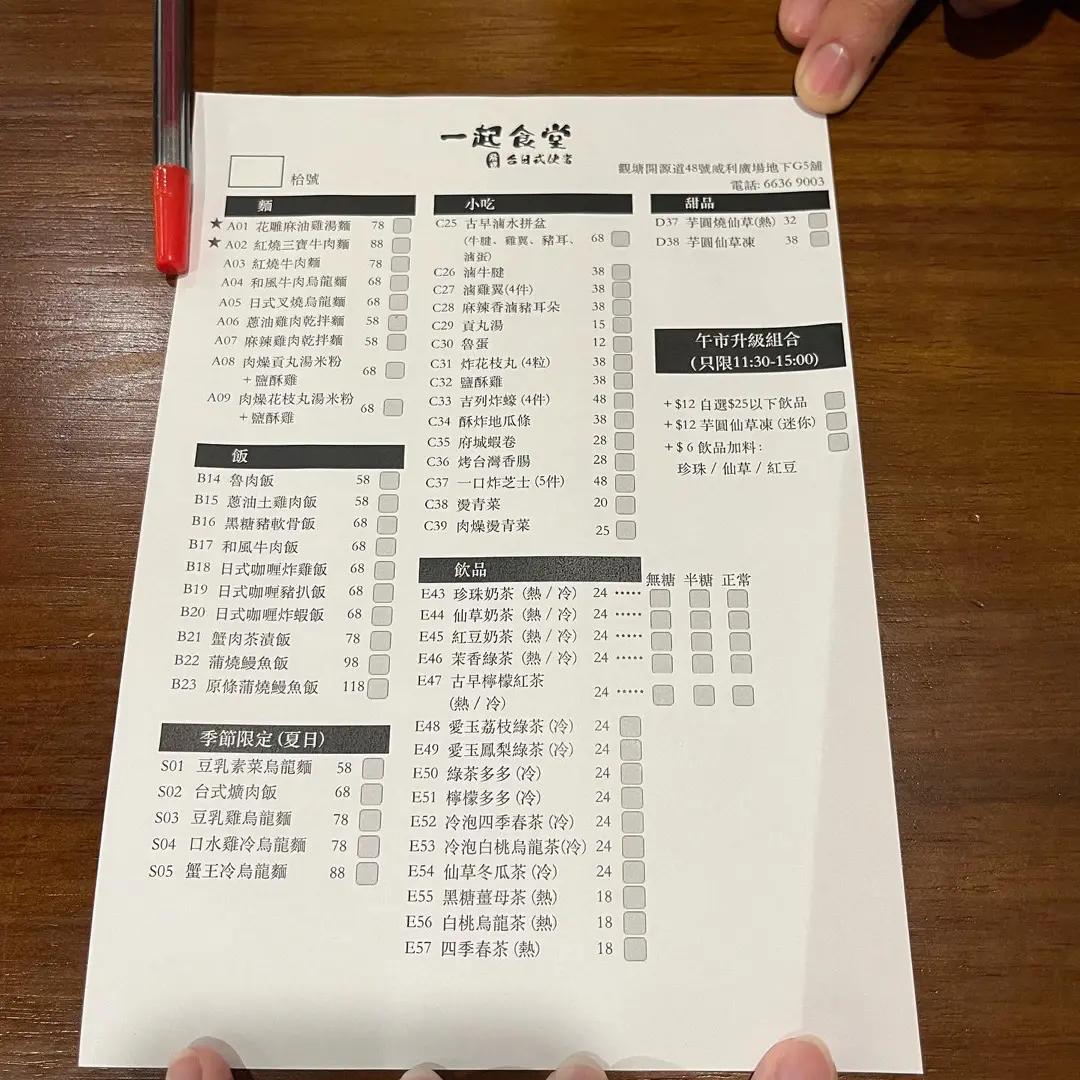 一起食堂
台日式便當
枱號
觀塘開源道48號威利廣場地下G5舖
電話: 6636 9003
麵
★ A01 花雕麻油雞湯麵 78
★ A02 紅燒三寶牛肉麵 88
A03 紅燒牛肉麵 78
A04 和風牛肉烏龍麵 68
A05 日式叉燒烏龍麵 68
A06 蔥油雞肉乾拌麵 58
A07 麻辣雞肉乾拌麵 58
A08 肉燥貢丸湯米粉 68
+ 鹽酥雞
A09 肉燥花枝丸湯米粉 68
+ 鹽酥雞
飯
B14 魯肉飯 58
B15 蔥油土雞肉飯 58
B16 黑糖豬軟骨飯 68
B17 和風牛肉飯 68
B18 日式咖喱炸雞飯 68
B19 日式咖喱豬扒飯 68
B20 日式咖喱炸蝦飯 68
B21 蟹肉茶漬飯 78
B22 蒲燒鰻魚飯 98
B23 原條蒲燒鰻魚飯 118
季節限定 (夏日)
S01 豆乳素菜烏龍麵 58
S02 台式爌肉飯 68
S03 豆乳雞烏龍麵 78
S04 口水雞冷烏龍麵 78
S05 蟹王冷烏龍麵 88
小吃
C25 古早滷水拼盆 68
(牛腱、雞翼、豬耳、
滷蛋)
C26 滷牛腱 38
C27 滷雞翼(4件) 38
C28 麻辣香滷豬耳朵 38
C29 貢丸湯 15
C30 魯蛋 12
C31 炸花枝丸 (4粒) 38
C32 鹽酥雞 38
C33 吉列炸蠔 (4件) 48
C34 酥炸地瓜條 38
C35 府城蝦卷 28
C36 烤台灣香腸 28
C37 一口炸芝士 (5件) 48
C38 燙青菜 20
C39 肉燥燙青菜 25
飲品
無糖 半糖 正常
E43 珍珠奶茶 (熱 / 冷) 24 •••••
E44 仙草奶茶 (熱 / 冷) 24 •••••
E45 紅豆奶茶 (熱 / 冷) 24 •••••
E46 茉香綠茶 (熱 / 冷) 24 •••••
E47 古早檸檬紅茶 24 •••••
(熱 / 冷)
E48 愛玉荔枝綠茶 (冷) 24
E49 愛玉鳳梨綠茶 (冷) 24
E50 綠茶多多 (冷) 24
E51 檸檬多多 (冷) 24
E52 冷泡四季春茶 (冷) 24
E53 冷泡白桃烏龍茶(冷) 24
E54 仙草冬瓜茶 (冷) 24
E55 黑糖薑母茶 (熱) 18
E56 白桃烏龍茶 (熱) 18
E57 四季春茶 (熱) 18
甜品
D37 芋圓燒仙草(熱) 32
D38 芋圓仙草凍 38
午市升級組合
(只限11:30-15:00)
+ $12 自選$25以下飲品
+ $12 芋圓仙草凍 (迷你)
+ $ 6 飲品加料:
珍珠 / 仙草 / 紅豆